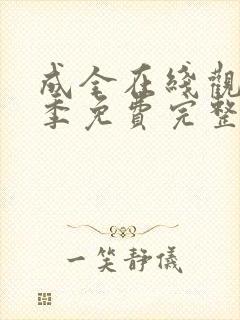 成全在綫觀
季免費完整
一笑靜儀